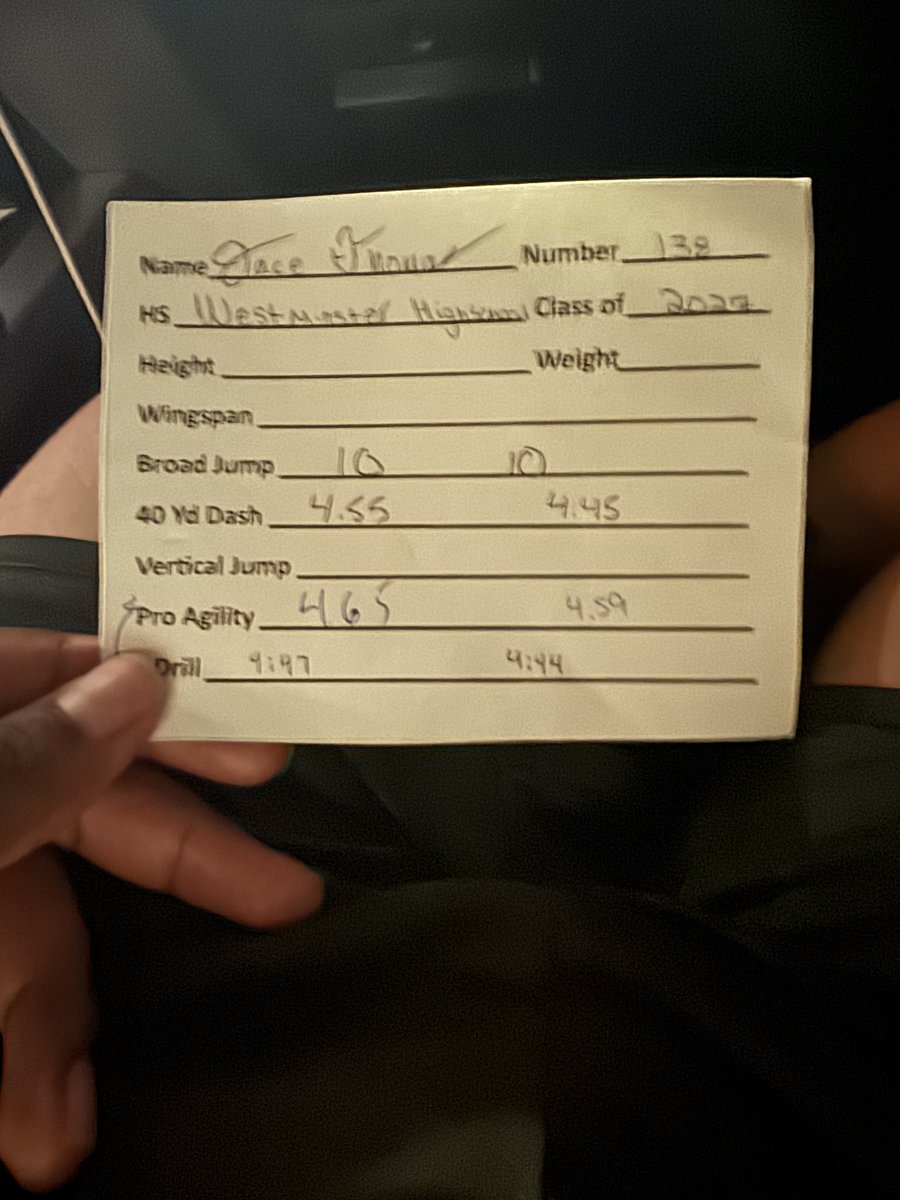 Name Number 138
HS Westminster Highschool Class of 2027
Height Weight
Wingspan
Broad Jump 10 10
40 Yd Dash 4.55 4.45
Vertical Jump
Pro Agility 465 4.59
Drill 4:47 4:44